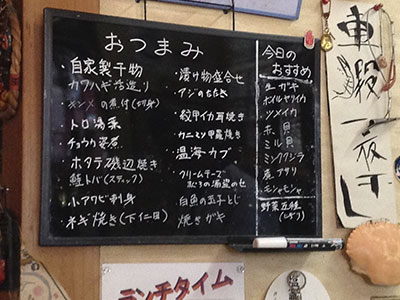 おつまみ
・自家製干物
カワハギ活造り
・メンメの煮付(切身)
・トロ湯葉
・ホタテ磯辺焼き
鮭トバ(スティック)
・小アワビ刺身
・ネギ焼き(下仁田)
・漬け物盛合せ
・アジのたたき
・紋甲イカ耳焼き
・カニミソ甲羅焼き
・温海カブ
・クリームチーズ
・白魚の玉子とじ
焼きガキ
今日の
おすすめ
生ガキ
ホイルヤリイカ
ツメイカ
赤貝
ミル貝
ミンククジラ
シャモシャモ
野菜五種
車海老
一夜干し
ランチタイム